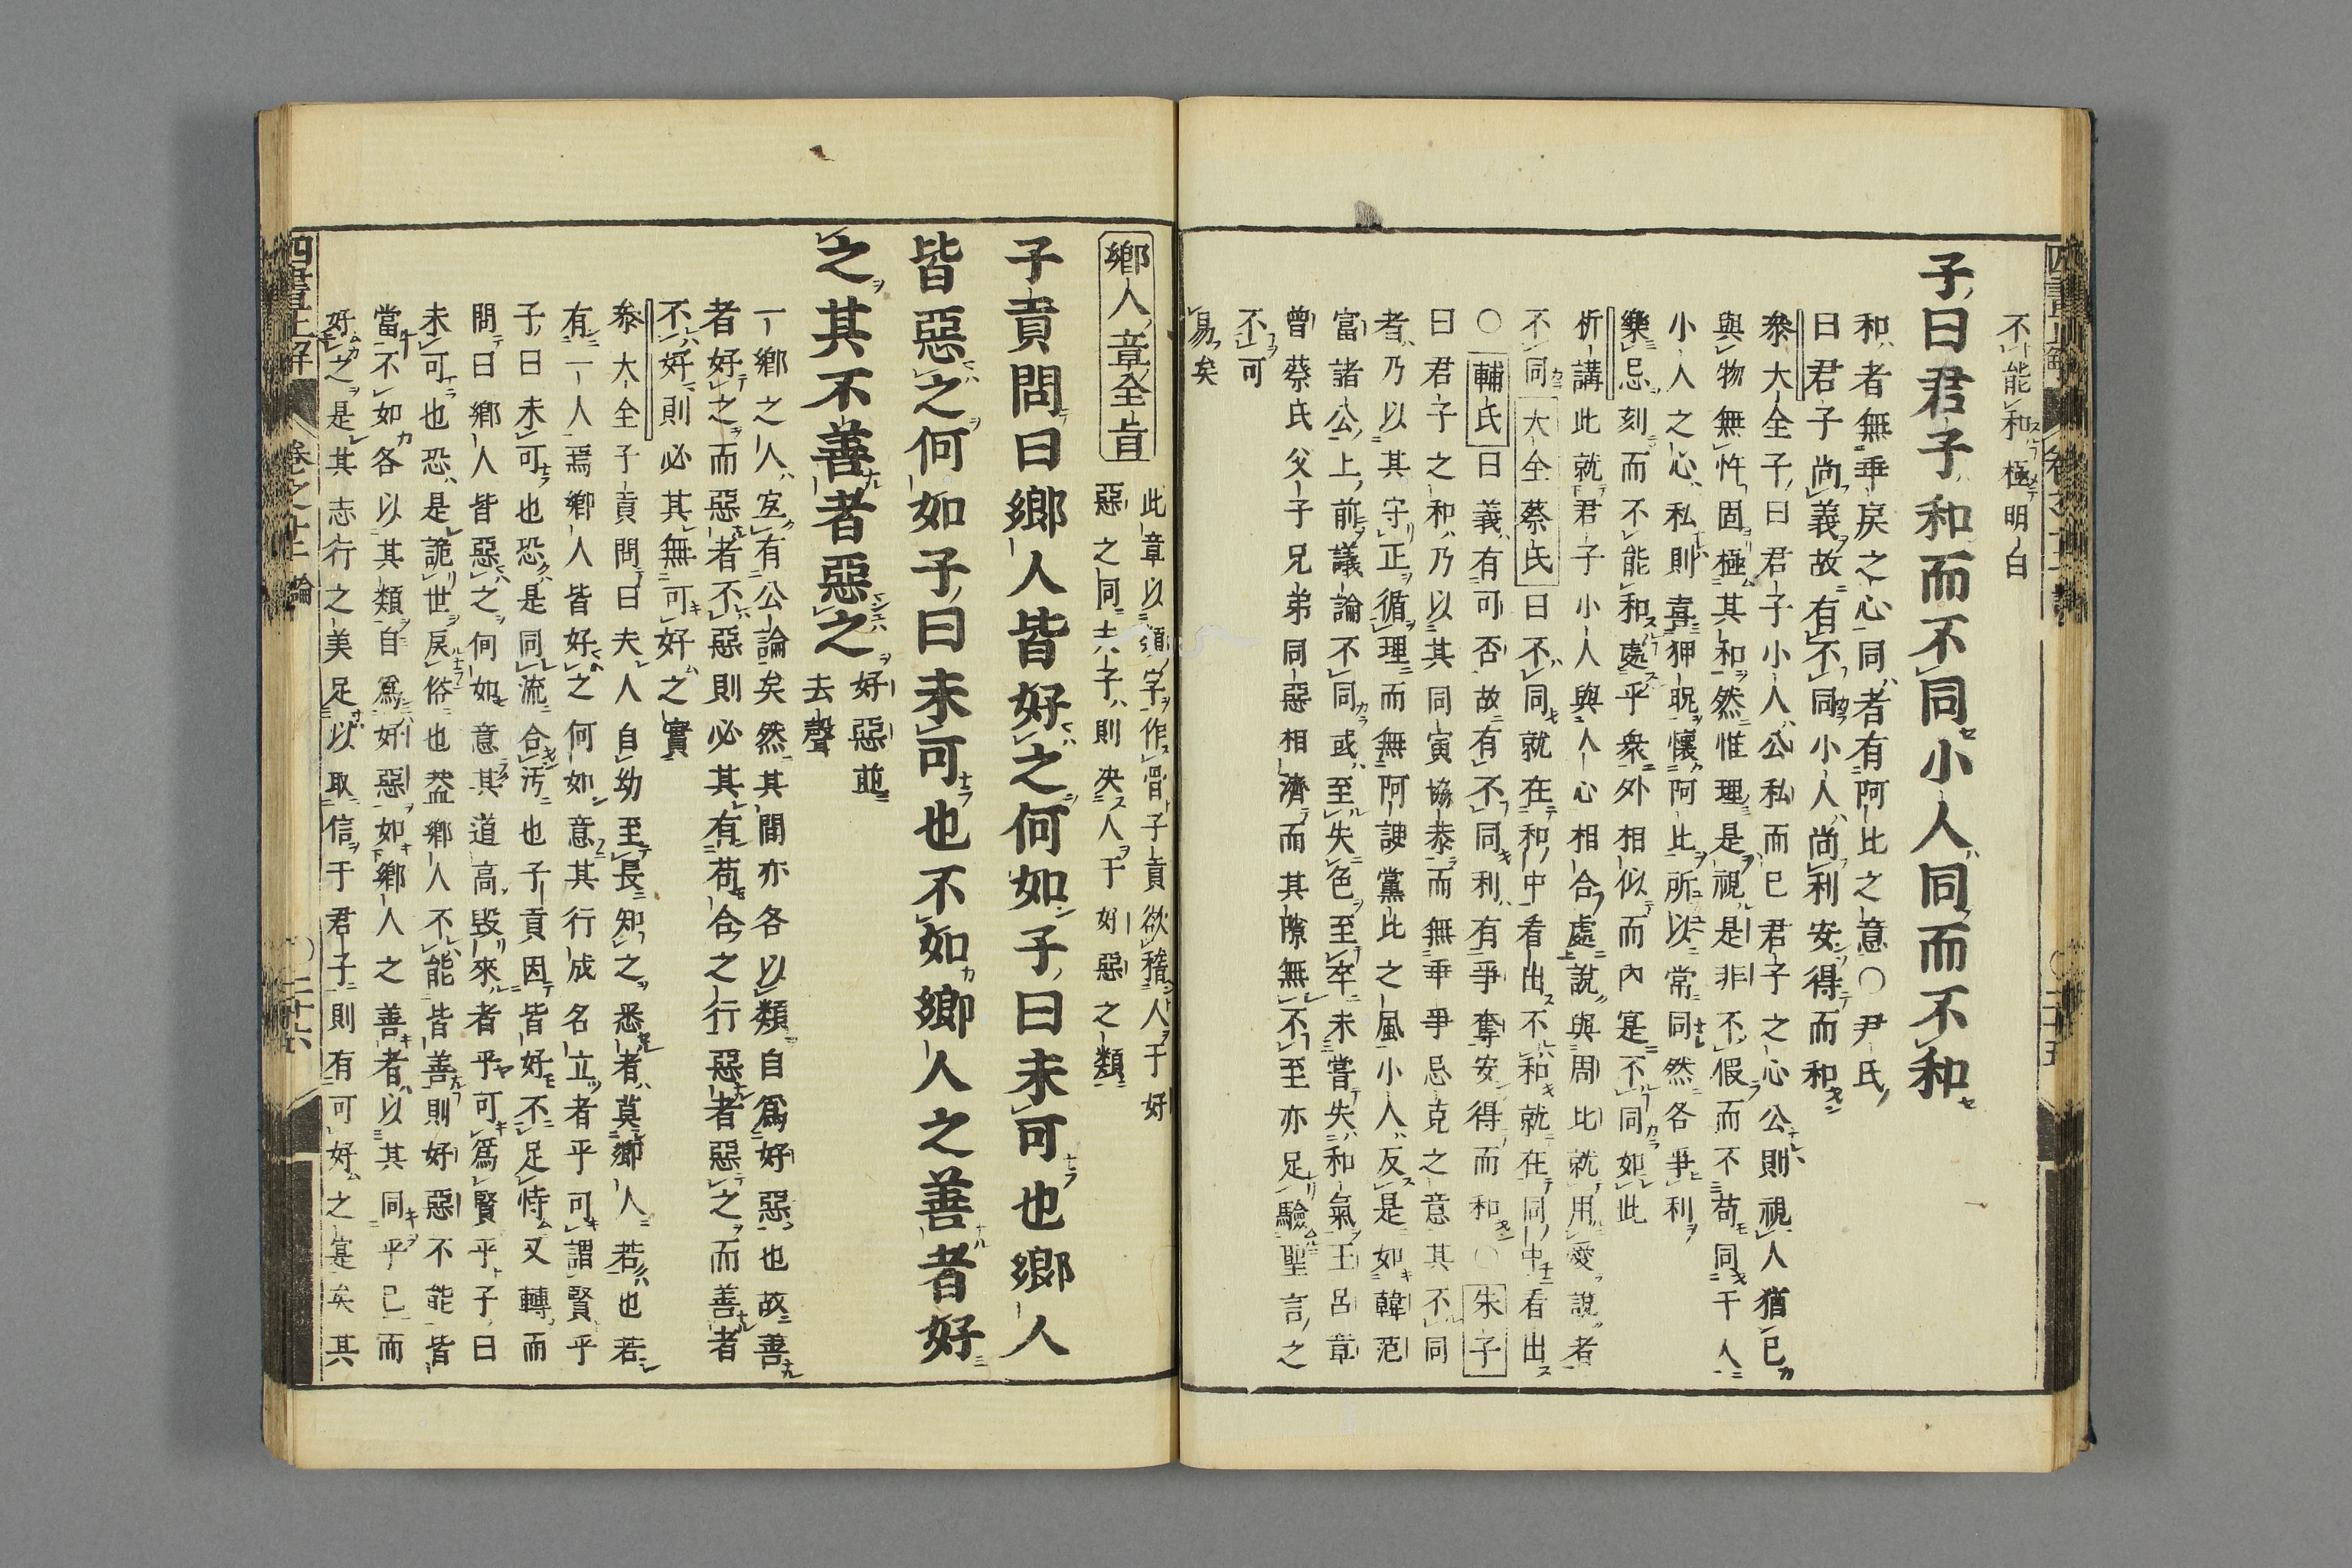 不能和極明白
子曰君子和而不同小人同而不和
和者無乖戾之心同者有阿比之意○尹氏
曰君子尚義故有不同小人尚利安得而和
叅大全子曰君子小人公私而已君子之心公則視人猶已
與物無忤固極其和然惟理是視是非不假而不苟同于人
小人之心私則喜狎昵懷阿比所以常同然各爭利
樂忌刻而不能和處乎衆外相似而內寔不同如此
析講此就君子小人與人心相合處說與周比就用愛說者
不同大全蔡氏曰不同就在和中看出不和就在同中看出
○輔氏曰義有可否故有不同利有爭奪安得而和○朱子
曰君子之和乃以其同寅協恭而無乖爭忌克之意其不同
者乃以其守正循理而無阿諛黨比之風小人反是如韓范
富諸公上前議論不同或至失色至卒未嘗失和氣王呂章
曾蔡氏父子兄弟同惡相濟而其隙無不至亦足驗聖言之
不可
易矣
鄉人章全旨
此章以類字作骨子貢欲稽人于好
惡之同夫子則决人于好惡之類
子貢問曰鄉人皆好之何如子曰未可也鄉人
皆惡之何如子曰未可也不如鄉人之善者好
之其不善者惡之
好惡並
去聲
一鄉之人宜有公論矣然其間亦各以類自爲好惡也故善
者好之而惡者不惡則必其有苟合之行惡者惡之而善者
不好則必其無可好之實
叅大全子貢問曰夫人自幼至長知之悉者莫鄉人若也若
有一人焉鄉人皆好之何如意其行成名立者乎可謂賢乎
子曰未可也恐是同流合汚也子貢因皆好不足恃又轉而
問曰鄉人皆惡之何如意其道高毀來者乎可爲賢乎子曰
未可也恐是詭世戾俗也葢鄉人不能皆善則好惡不能皆
當不如各以其類自爲好惡如鄉人之善者以其同乎已而
好之是其志行之美足以取信于君子則有可好之寔矣其
四書正解
卷之十二
論
二十六